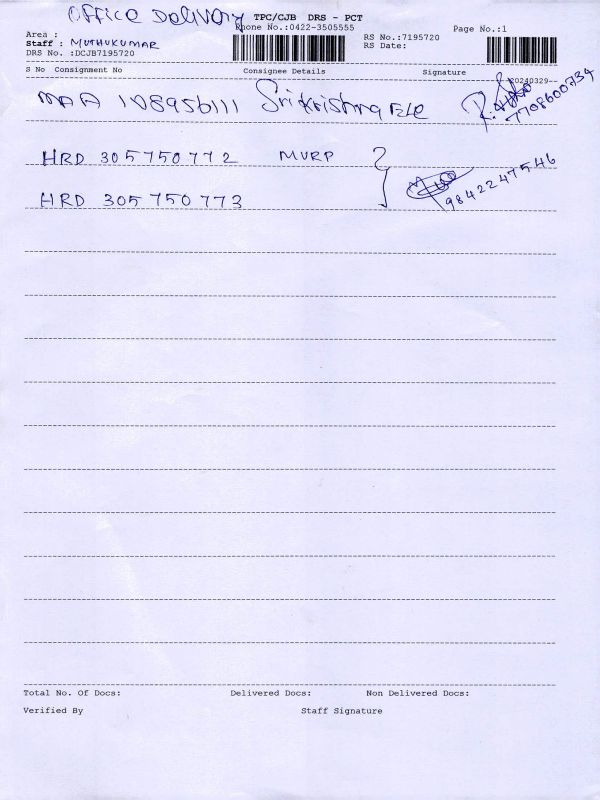 Office Delivery
TPC/CJB DRS - PCT
Phone No.:0422-3505555
Page No.:1
Area :
RS No.:7195720
Staff : MUTHUKUMAR
RS Date:
DRS No. :DCJB7195720
S No Consignment No Consignee Details Signature
20240329--
MAA 108956111 Srikrishna Ele
7708600734
HRD 305750772 MVRP
9842247546
HRD 305750773
Total No. Of Docs: Delivered Docs: Non Delivered Docs:
Verified By Staff Signature